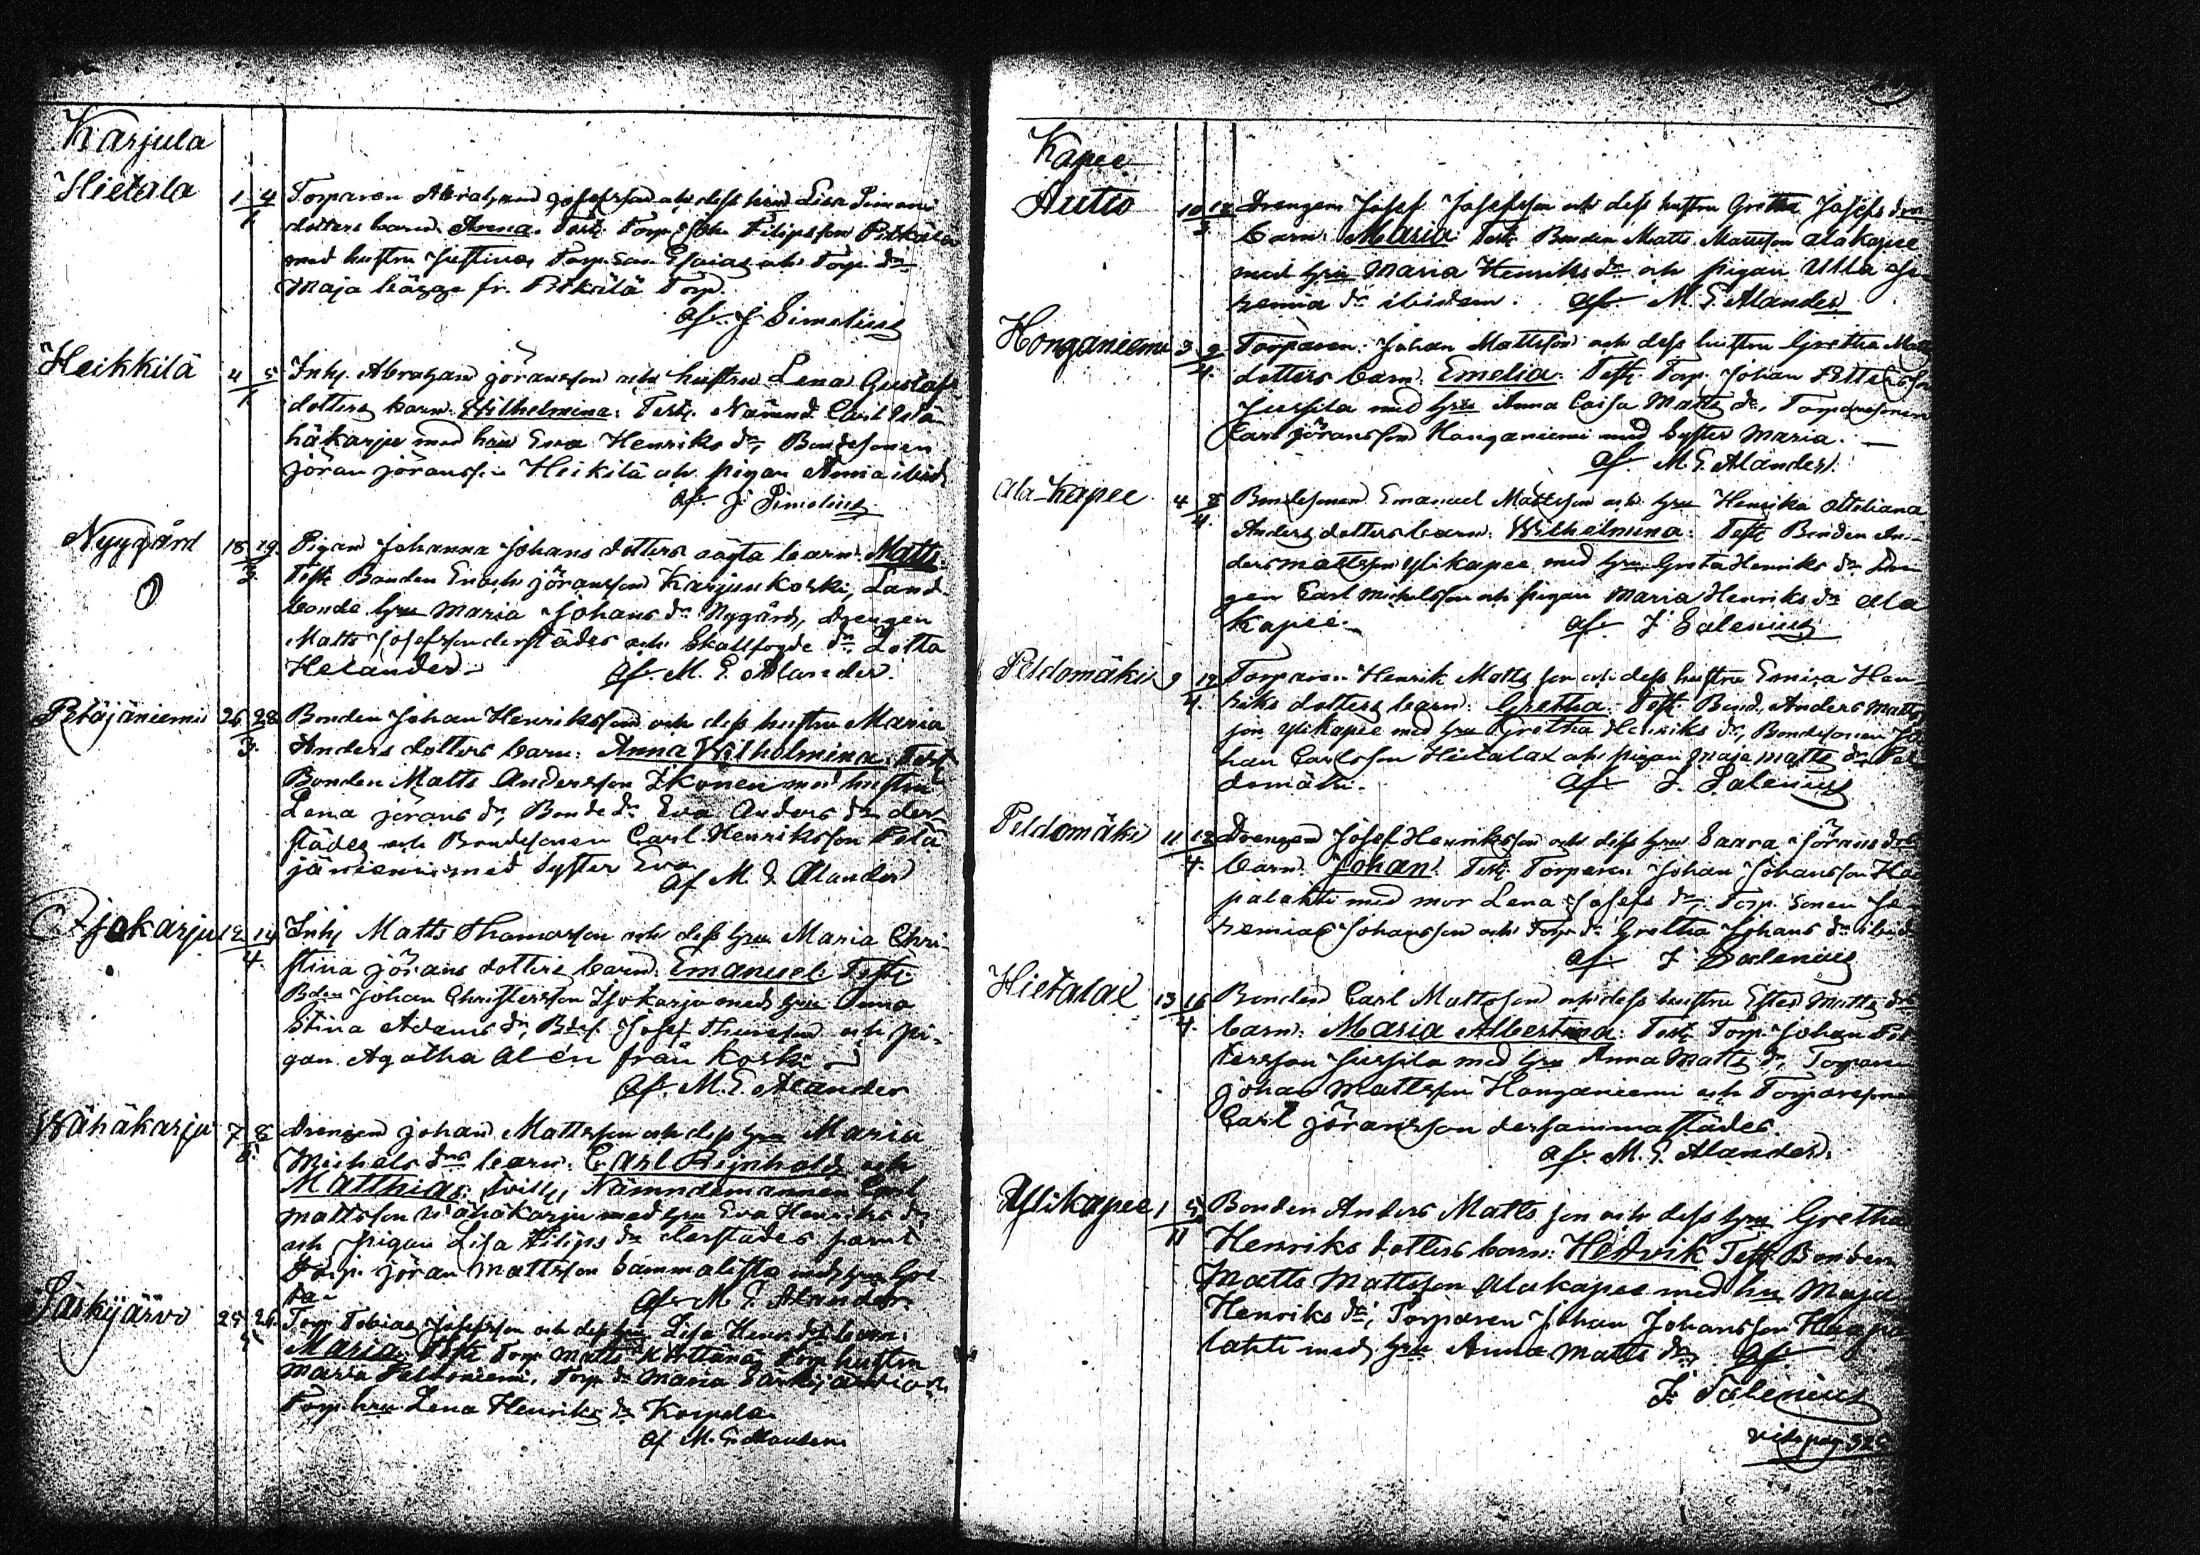 Karjula
Hietala 1 4/1 Torparen Abraham Josefsson och dess hru Lisa Simons
dotters barn: Anna. Test: Torp. Joh. Filipsson Pitkälä
med hustru Justina, Torp. son Esaias och Torp. dr
Maja bägge fr. Pitkälä Torp.
af. J. Simelius
Heikkilä 4 5/1 Inhs. Abraham Jöransson och hustru Lena Gustafs
dotters barn: Wilhelmina. Test: Nämnd. Carl Wä-
häkarju med hru Eva Henriks dr, Bondesonen
Jöran Jöranss. Heikilä och pigan Anna ibid.
af. J. Simelius
Nyygård 18 19/3 Pigan Johanna Johans dotters oägta barn: Matts.
Test: Bonden Enoch Jöransson Karjunkoski, Land
bonde hru Maria Johans dr Nygård, drengen
Matts Josefsson derstädes och Skallfogde dr Lotta
Helander. af. M. E. Alander.
Petäjäniemi 26 28/3 Bonden Johan Henriksson och dess hustru Maria
Anders dotters barn: Anna Wilhelmina. Test:
Bonden Matts Andersson Ikonen med hustru
Lena Jörans dr, Bonde dr Eva Anders dr der-
städes och Bondesonen Carl Henriksson Petä
jäniemi med syster Eva
af M. E. Alander
Isokarju 12 14/4 Inhs Matts Thomasson och dess hru Maria Chri-
stina Jörans dotters barn: Emanuel. Test:
Bden Johan Christersson Isokarju med hru Anna
Stina Adams dr, Bdes. Josef Thomsson och pi-
gan Agatha Alén från Koski
af. M. E. Alander
Wähäkarju 7 8/5 Drengen Johan Mattsson och dess hru Maria
Michels drs barn: Carl Reinhold och
Matthias, tvill., Nämndemannen Carl
Mattsson Wähäkarju med hru Eva Henriks dr
och pigan Lisa Filips dr derstädes samt
Torp. Jöran Mattsson Sammalisto med hru Gre
ta. af M. E. Alander.
Särkijärvi 25 26/5 Torp. Tobias Josefsson och dess hru Lisa Henr. drs barn:
Maria. Test: Torp. Matts Torp. hustru
Maria Peltoniemi, Torp. dr Maria Särkijärvi och
Torp. hru Lena Henriks dr Korpela.
af M. E. Alander
Kapee
Autio 10 12/3 Drengen Josef Josefsson och dess hustru Gretha Josefs drs
barn: Maria. Test: Bonden Matts Mattsson Alakapee
med hru Maria Henriks dr och pigan Ulla Je-
remia dr ibidem. af M. E. Alander
Honganiemi 3 9/4 Torparen Johan Mattsson och dess hustru Gretha Matts
dotters barn: Emelia. Test: Torp. Johan Pettersson
Jussila med hru Anna Caisa Matts dr, Torparesonen
Carl Jöransson Honganiemi med Syster Maria.
af M. E. Alander.
Ala-Kapee 4 8/4 Bondesonen Emanuel Mattsson och hru Henrika Ottiliana
Anders dotters barn: Wilhelmina. Test: Bonden An-
ders Mattsson Ylikapee med hru Greta Henriks dr Dren
gen Carl Michelsson och pigan Maria Henriks dr Ala
Kapee. af J. Salenius
Peldomäki 9 17/4 Torparen Henrik Matts son och dess hustru Eerica Hen-
riks dotters barn: Gretha. Test: Bond. Anders Matts
son Ylikapee med hru Gretha Henriks dr, Bondesonen Jo
han Carlsson Hietalax och pigan Maja Matts dr Pel
domäki. af J. Salenius
Peldomäki 11 12/4 Drengen Josef Henriksson och dess hru Saara Jörans drs
barn: Johan. Test: Torparen Johan Johansson Haa
palahti med mor Lena Josefs dr, Torp. sonen Je-
remias Johansson och Torp. dr Gretha Johans dr ibid.
af J. Salenius
Hietalax 13 16/4 Bonden Carl Mattsson och dess hustru Ester Matts drs
barn: Maria Albertina. Test: Torp. Johan Pet
tersson Jussila med hru Anna Matts dr, Torparen
Johan Mattsson Honganiemi och Torparesonen
Carl Jöransson dersammastädes.
af. M. E. Alander.
Ylikapee 1 5/11 Bonden Anders Matts son och dess hru Gretha
Henriks dotters barn: Hedvik. Test: Bonden
Matts Mattsson Alakapee med hru Maja
Henriks dr, Torparen Johan Johansson Haapa
lahti med hru Anna Matts dr. af
J. Salenius
vide pag.